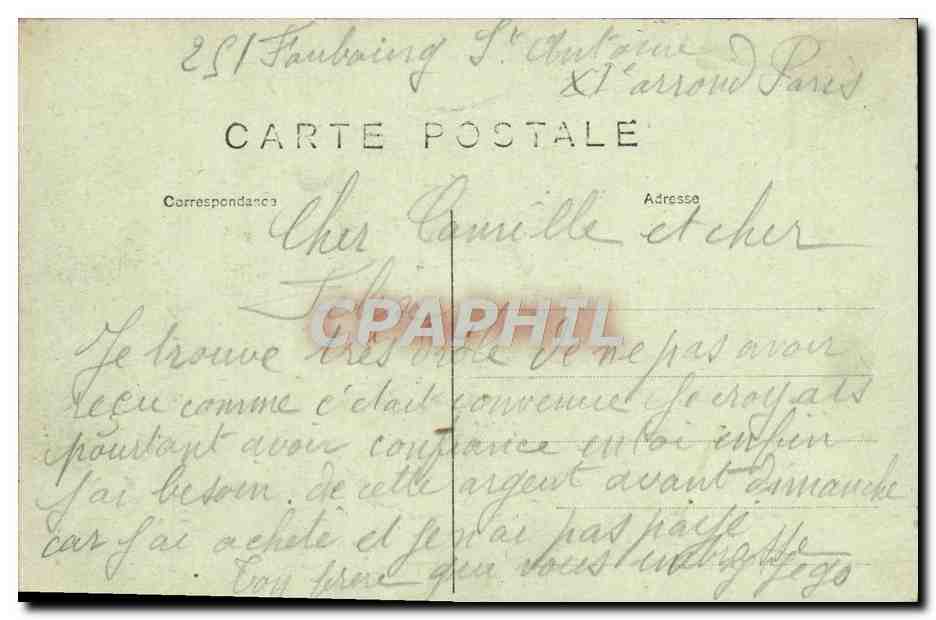 251 Faubourg St Antoine
XIe arrond Paris
CARTE POSTALE
Correspondance
Adresse
Cher Camille et cher
CPAPHIL
Je trouve très drôle de ne pas avoir
reçu comme c'était convenue Je croyais
pourtant avoir confiance en toi enfin
J'ai besoin de cette argent avant dimanche
car J'ai acheté et Je n'ai pas payé
Ton frère qui vous embrasse